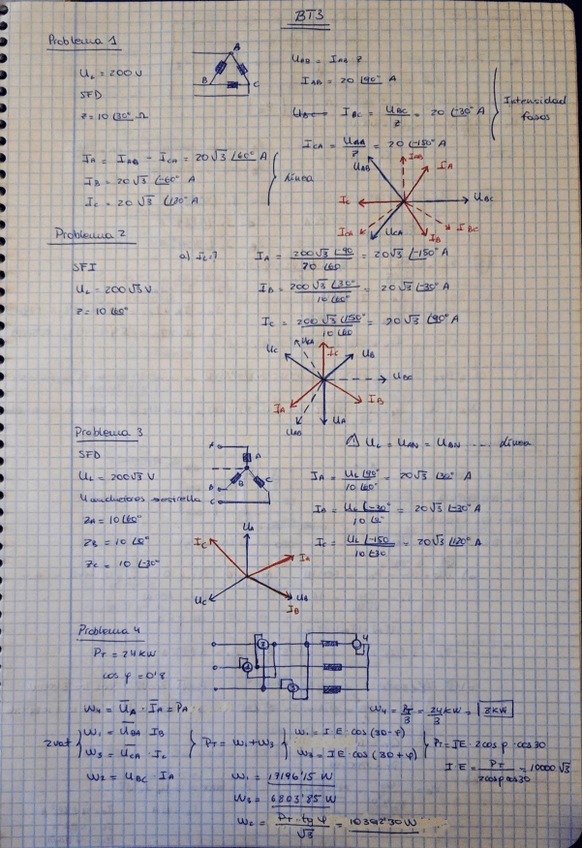 BT3
Problema 1
A
B
C
U_L = 200 V
SFD
Z = 10 ∠30° Ω
U_AB = I_AB · Z
I_AB = 20 ∠90° A
I_BC = U_BC / Z = 20 ∠-30° A
I_CA = U_AA / Z = 20 ∠-150° A
Intensidad
fases
I_A = I_AB - I_CA = 20√3 ∠60° A
I_B = 20√3 ∠-60° A
I_C = 20√3 ∠120° A
línea
U_AB
I_AB
I_A
I_C
U_BC
I_CA
U_CA
I_B
I_BC
Problema 2
SFI
U_L = 200√3 V
Z = 10 ∠60°
a) I_L?
I_A = 200√3 ∠-90 / 10 ∠60 = 20√3 ∠-150° A
I_B = 200√3 ∠30° / 10 ∠60° = 20√3 ∠-30° A
I_C = 200√3 ∠150° / 10 ∠60 = 20√3 ∠90° A
U_CA
U_C
I_C
U_B
U_BC
I_A
I_B
U_AB
U_A
Problema 3
SFD
U_L = 200√3 V
4 conductores estrella
Z_A = 10 ∠60°
Z_B = 10 ∠0°
Z_C = 10 ∠-30°
A
A
B
C
B
C
⚠ U_L = U_AN = U_BN .... línea
I_A = U_L ∠90° / 10 ∠60° = 20√3 ∠30° A
I_A = U_L ∠-30° / 10 ∠0° = 20√3 ∠-30° A
I_C = U_L ∠-150 / 10 ∠-30 = 20√3 ∠120° A
U_A
I_C
I_A
U_C
U_B
I_B
Problema 4
P_T = 24 KW
cos φ = 0'8
4
W_4 = U_A · I_A = P_A
W_4 = P_T / 3 = 24 KW / 3 = 8 KW
W_1 = U_BA I_B
W_3 = U_CA · I_C
W_2 = U_BC · I_A
P_T = W_1 + W_3
W_1 = I E · cos (30-φ)
W_3 = I E · cos (30+φ)
P_T = IE · 2cos φ · cos 30
I · E = P_T / 2cosφ cos30 = 10000 √3
W_1 = 17196'15 W
W_3 = 6803'85 W
W_2 = P_T · tg φ / √3 = 10392'30 W